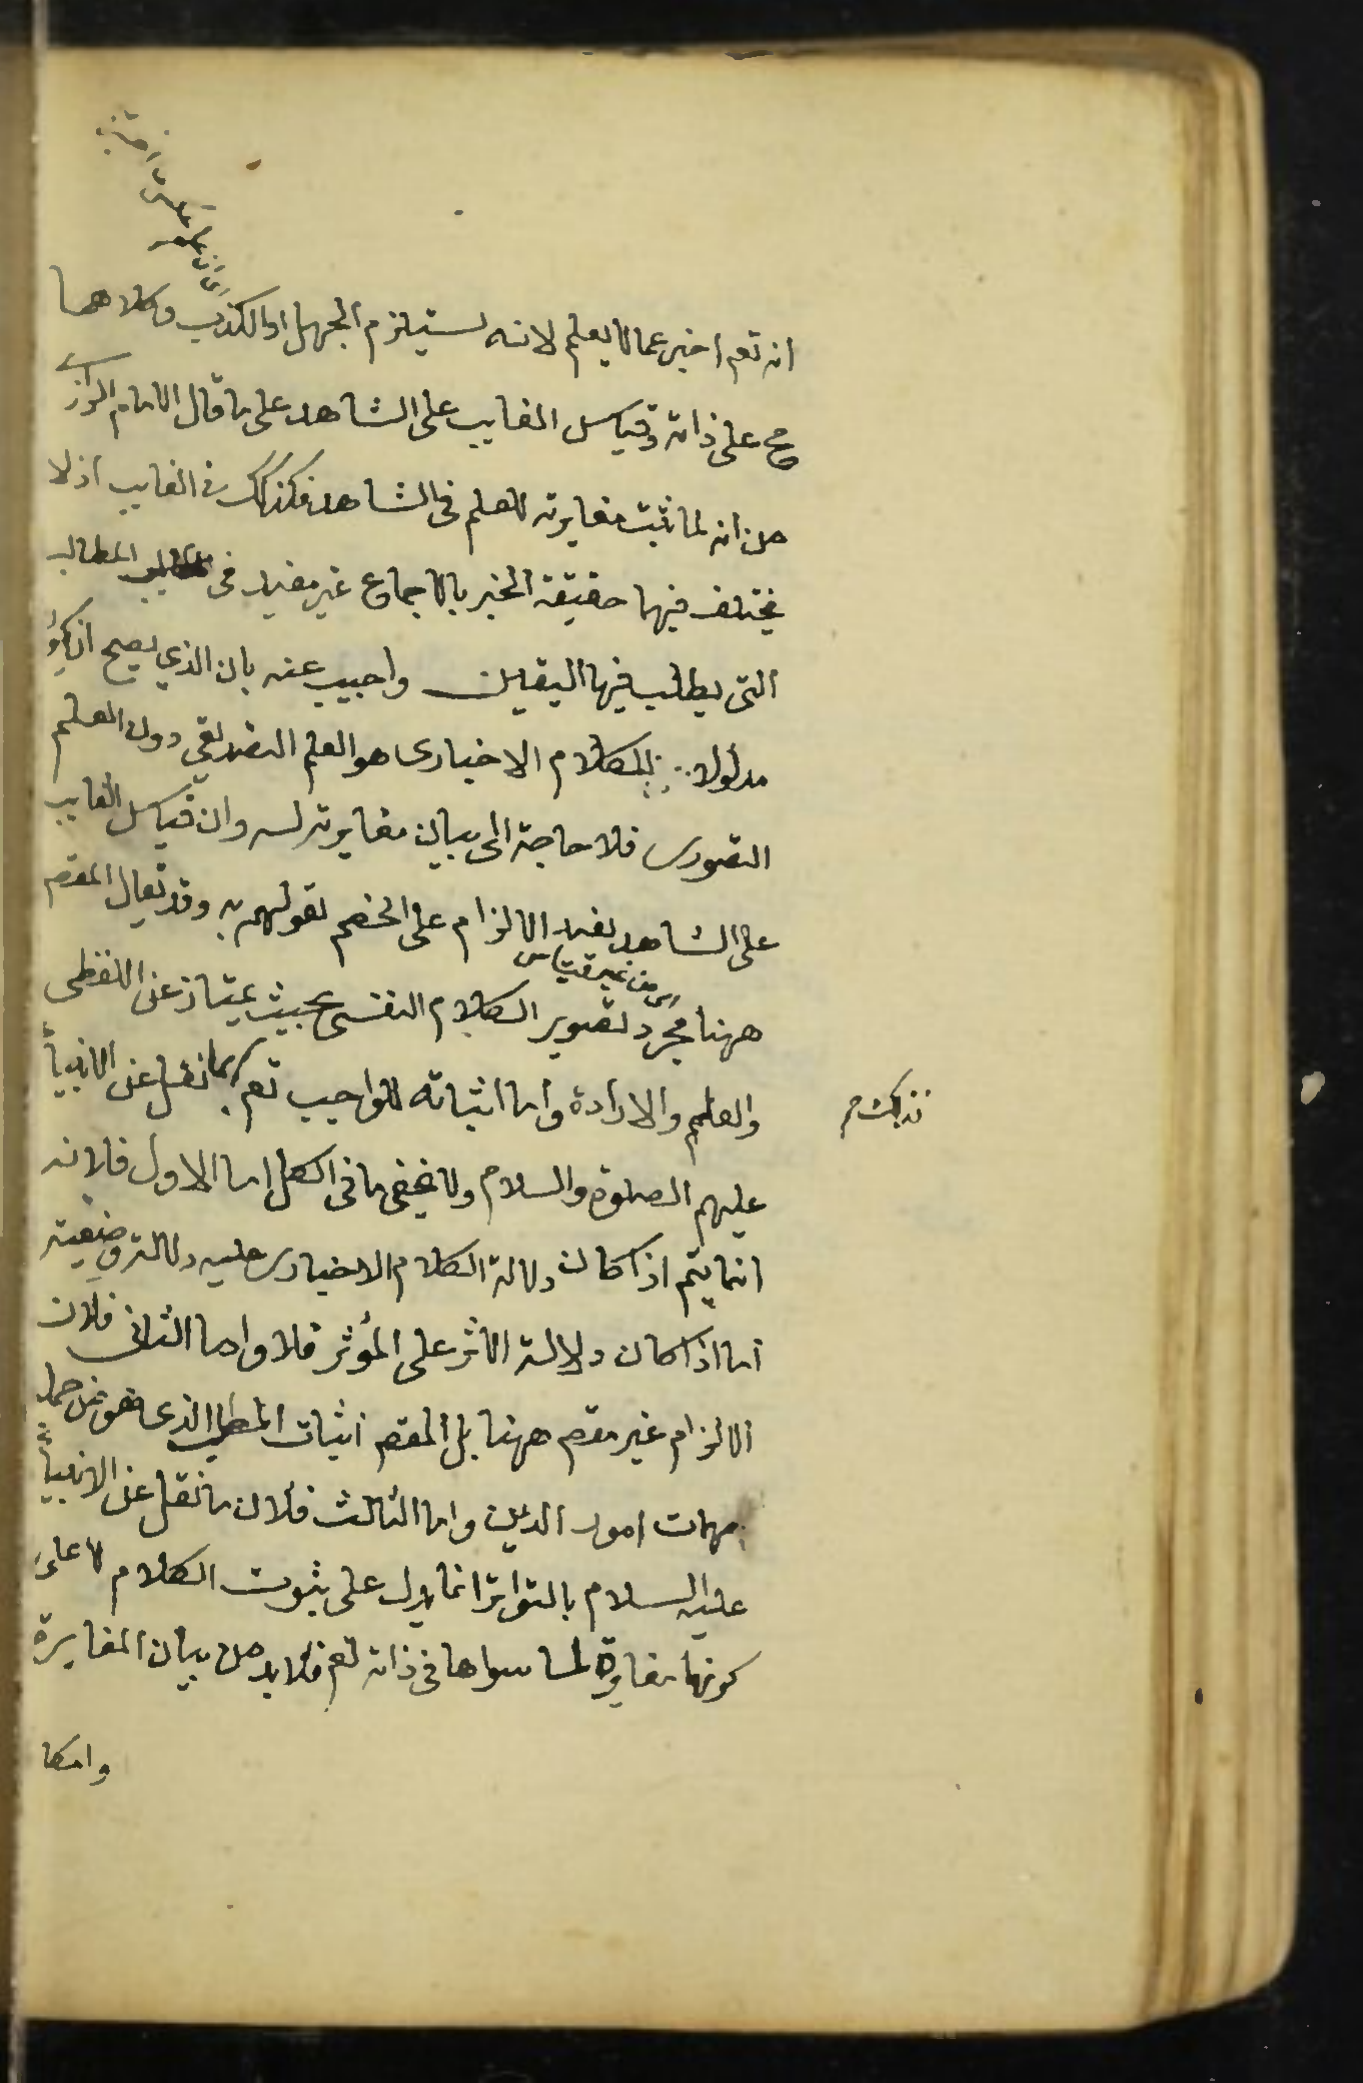 انه تعم اخبر عما لا يعلم لانه يستلزم الجهل او الكذب وكلاهما
مح على ذاته وقياس الغايب على الشاهد على ما قال الامام الرازى
من انه لما ثبت مغايرته للعلم فى الشاهد فكذلك فى الغايب اذ لا
يختلف فيهما حقيقة الخبر بالاجماع غير مفيد فى المطالب
التى يطلب فيها اليقين واجيب عنه بان الذي يصح ان يكون
مدلولا للكلام الاخبارى هو العلم التصديقي دون العلم
التصورى فلا حاجة الى بيان مغايرته له وان قياس الغايب
على الشاهد يفيد الالزام على الخصم لقولهم به وقد يقال المقصم
اى من غير قياس
ههنا مجرد تصوير الكلام النفسى بحيث يمتاز عن اللفظى
والعلم والارادة واما اثباته للواجب تعم بما نقل عن الانبياء
عليهم الصلوة والسلام ولا يخفى ما فى الكل اما الاول فلانه
انما يتم اذا كان دلالة الكلام الاخبارى عليه دلالة وضعية
اما اذا كان دلالة الاثر على المؤثر فلا واما الثانى فلان
الالزام غير مقصم ههنا بل المقصم اثبات المطلب الذى هو من جملة
مهمات امور الدين واما الثالث فلان ما نقل عن الانبياء
عليه السلام بالتواتر انما يدل على ثبوت الكلام لا على
كونها مغايرة لما سواها فى ذاته تعم فلا بد من بيان المغايرة
وامكا